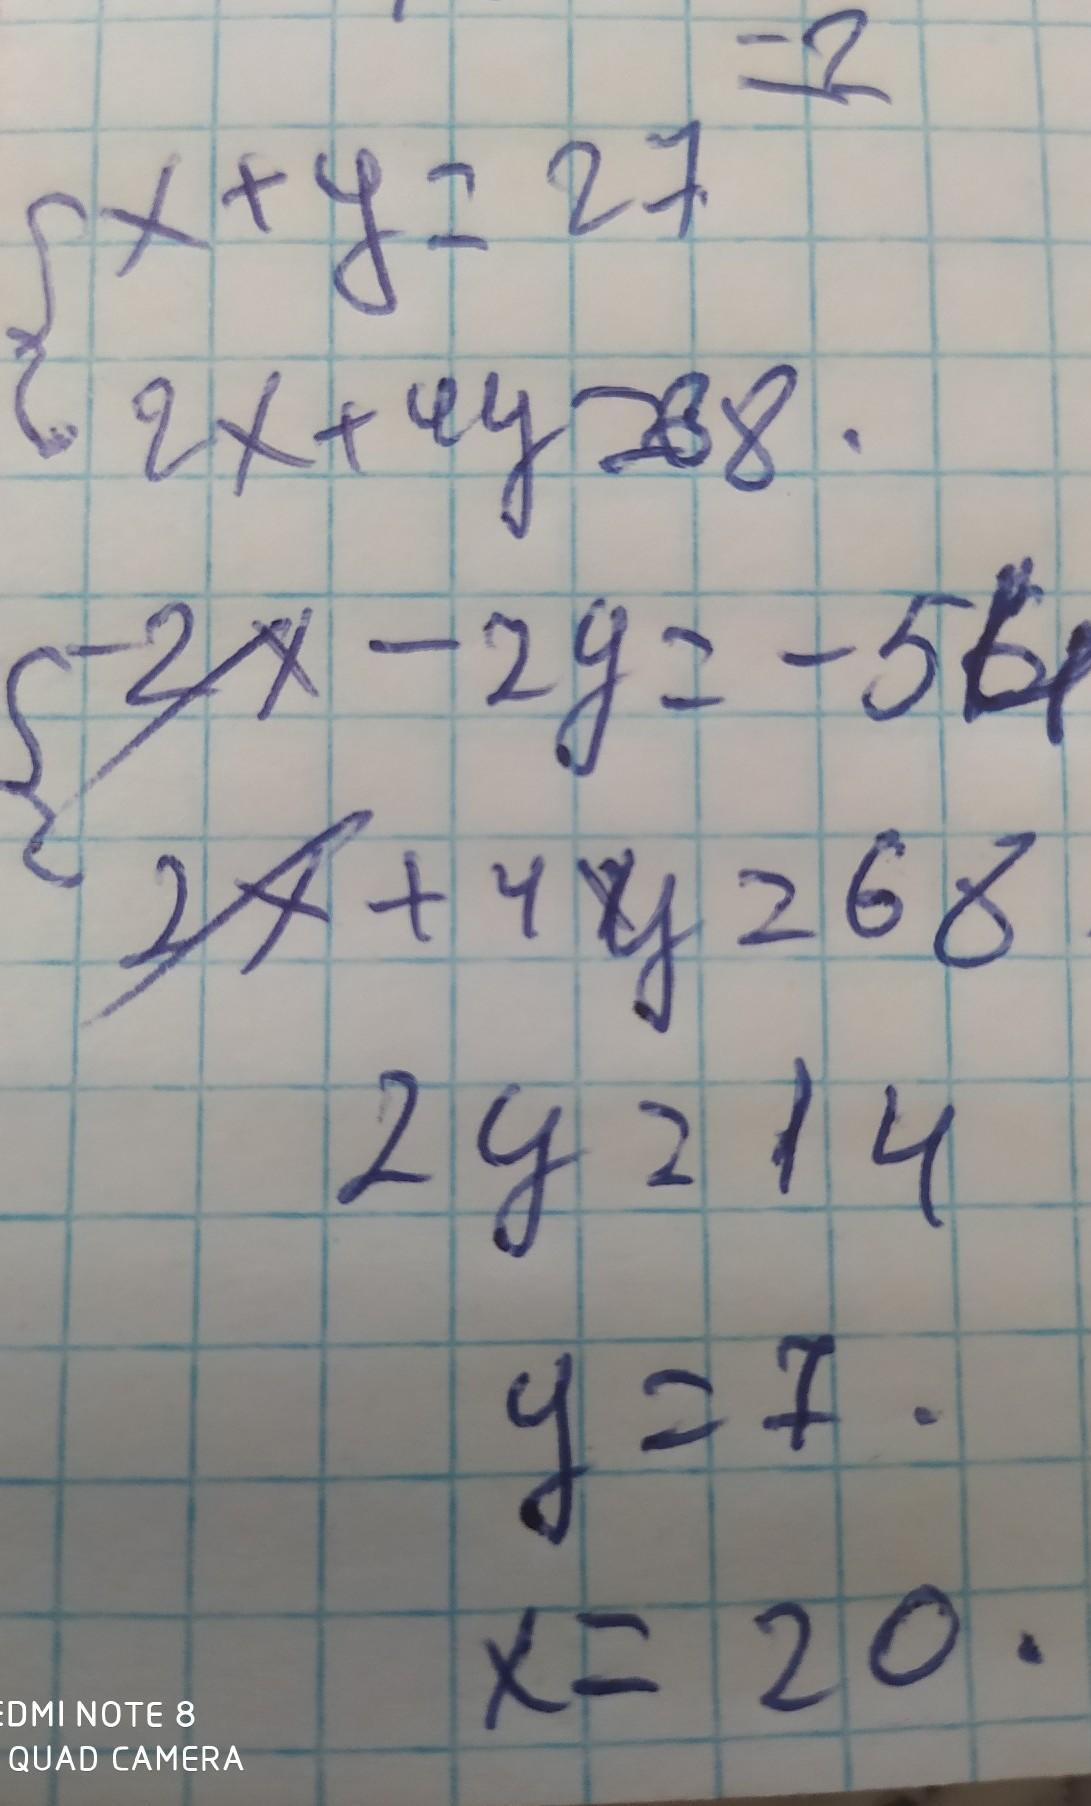 =2
x + y = 27
2x + 4y = 68.
-2x - 2y = -54
2x + 4y = 68.
2y = 14
y = 7.
x = 20.
EDMI NOTE 8
QUAD CAMERA